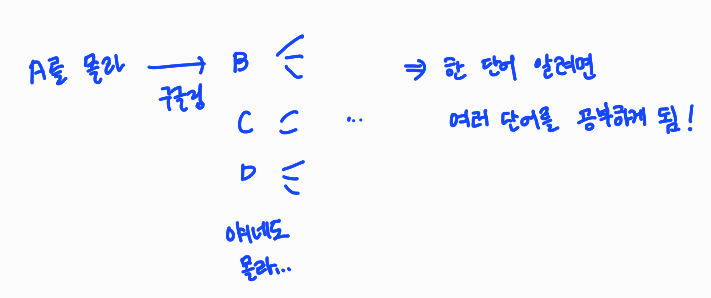 A를 몰라
구글링
B
C
D
...
얘네도
몰라...
⇒ 한 단어 알려면
여러 단어를 공부하게 됨!